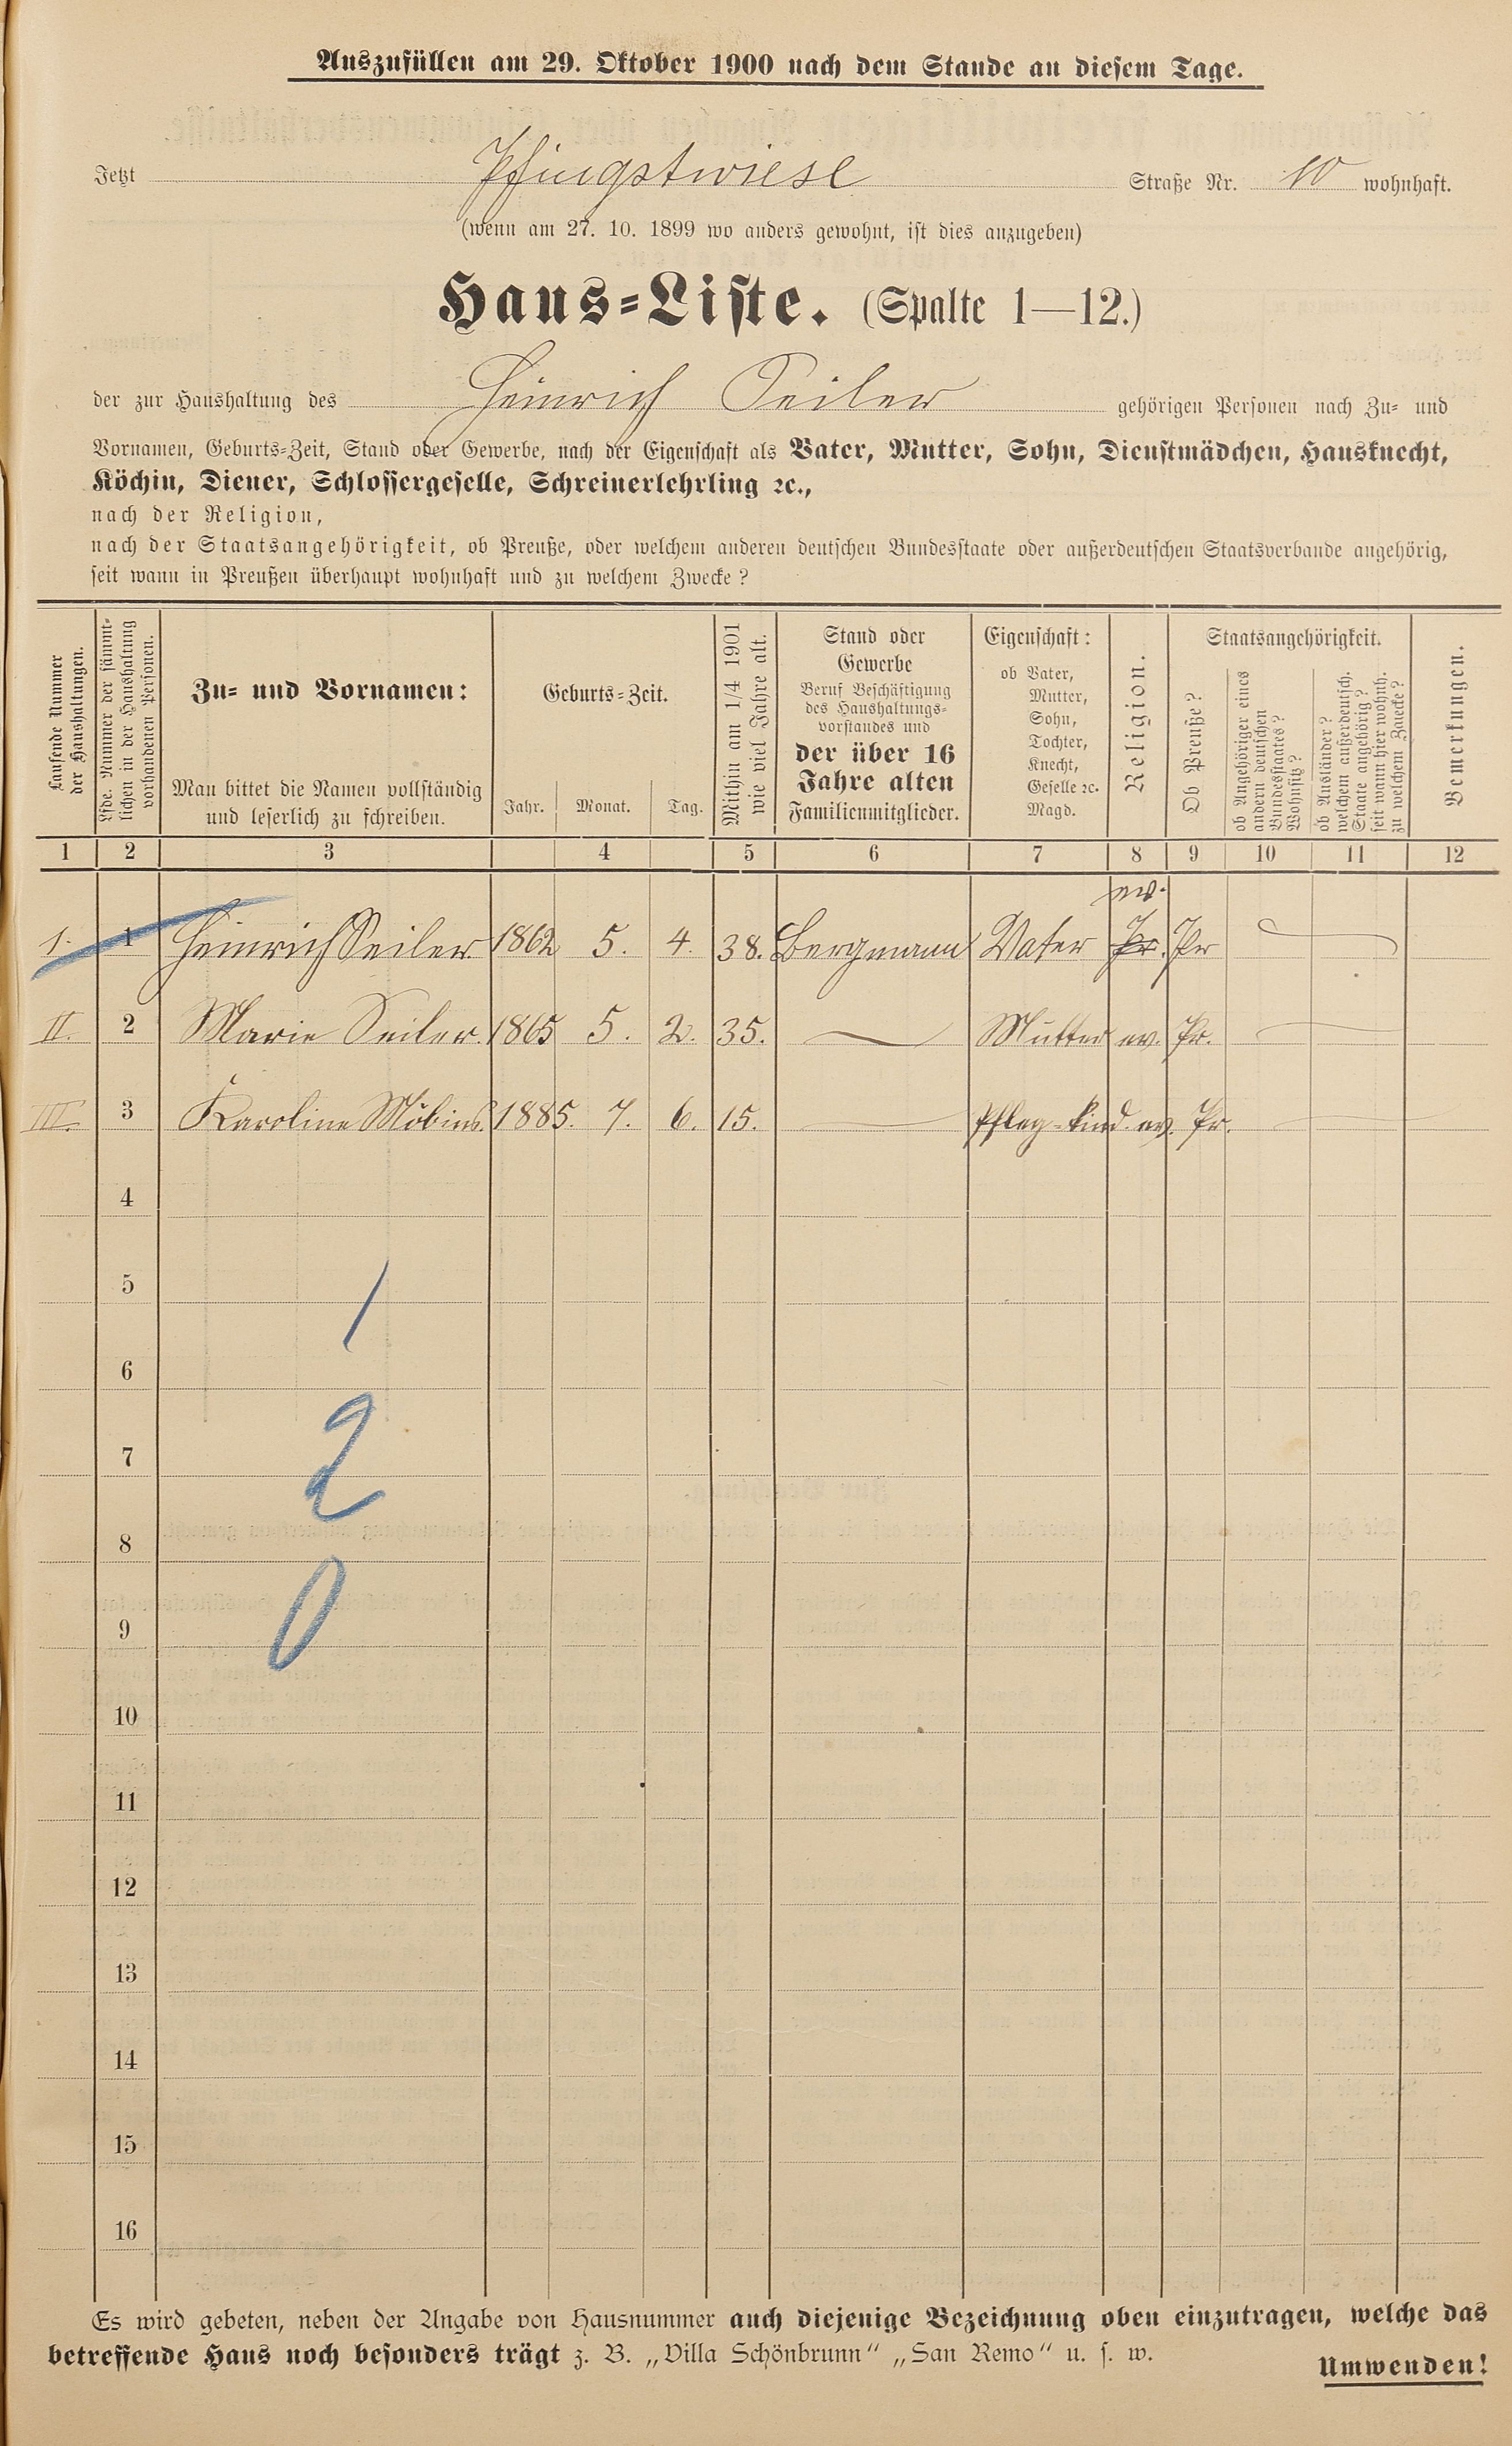 Auszufüllen am 29. Oktober 1900 nach dem Stande an diesem Tage.
Jetzt Pfingstwiese Straße Nr. 10 wohnhaft.
(wenn am 27. 10. 1899 wo anders gewohnt, ist dies anzugeben)
Haus-Liste. (Spalte 1—12.)
der zur Haushaltung des Heinrich Seiler gehörigen Personen nach Zu- und
Vornamen, Geburts-Zeit, Stand oder Gewerbe, nach der Eigenschaft als Vater, Mutter, Sohn, Dienstmädchen, Hausknecht,
Köchin, Diener, Schlossergeselle, Schreinerlehrling ꝛc.,
nach der Religion,
nach der Staatsangehörigkeit, ob Preuße, oder welchem anderen deutschen Bundesstaate oder außerdeutschen Staatsverbande angehörig,
seit wann in Preußen überhaupt wohnhaft und zu welchem Zwecke?
Laufende Nummer
der Haushaltungen.
Lfde. Nummer der sämmt-
lichen in der Haushaltung
vorhandenen Personen.
Zu- und Vornamen:
Man bittet die Namen vollständig
und leserlich zu schreiben.
Geburts-Zeit.
Jahr. Monat. Tag.
Mithin am 1/4 1901
wie viel Jahre alt.
Stand oder
Gewerbe
Beruf Beschäftigung
des Haushaltungs-
vorstandes und
der über 16
Jahre alten
Familienmitglieder.
Eigenschaft:
ob Vater,
Mutter,
Sohn,
Tochter,
Knecht,
Geselle ꝛc.
Magd.
Religion.
Staatsangehörigkeit.
Ob Preuße?
ob Angehöriger eines
andern deutschen
Bundesstaates?
Wohnsitz?
ob Ausländer?
welchem außerdeutsch.
Staate angehörig?
seit wann hier wohnh.
zu welchem Zwecke?
Bemerkungen.
1 2 3 4 5 6 7 8 9 10 11 12
ev.
1. 1 Heinrich Seiler 1862 5. 4. 38. Bergmann Vater Pr. Pr
II. 2 Marie Seiler. 1865 5. 2. 35. Mutter ev. Pr.
III. 3 Karoline Möbius. 1885. 7. 6. 15. Pfleg-kind. ev. Pr.
4
5
1
6
7
2
8
9
0
10
11
12
13
14
15
16
Es wird gebeten, neben der Angabe von Hausnummer auch diejenige Bezeichnung oben einzutragen, welche das
betreffende Haus noch besonders trägt z. B. „Villa Schönbrunn" „San Remo" u. s. w.
Umwenden!